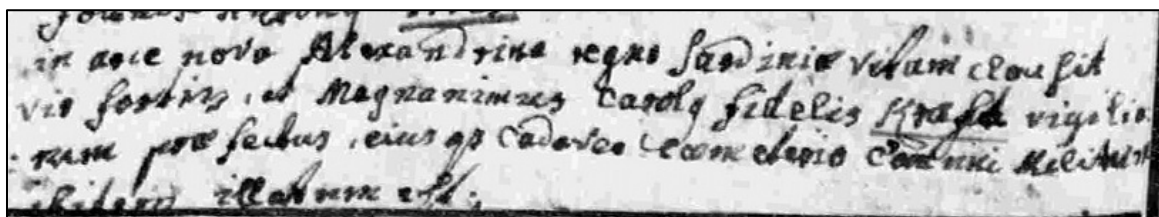 in arce nova Alexandrina regno Sardiniæ vitam clausit
vir fortis, et Magnanimus Carolg fidelis Kraft vigilia
rum præfectus, eiusqs Cadaver Cœmeterio Communi Militum
ibidem illatum est;